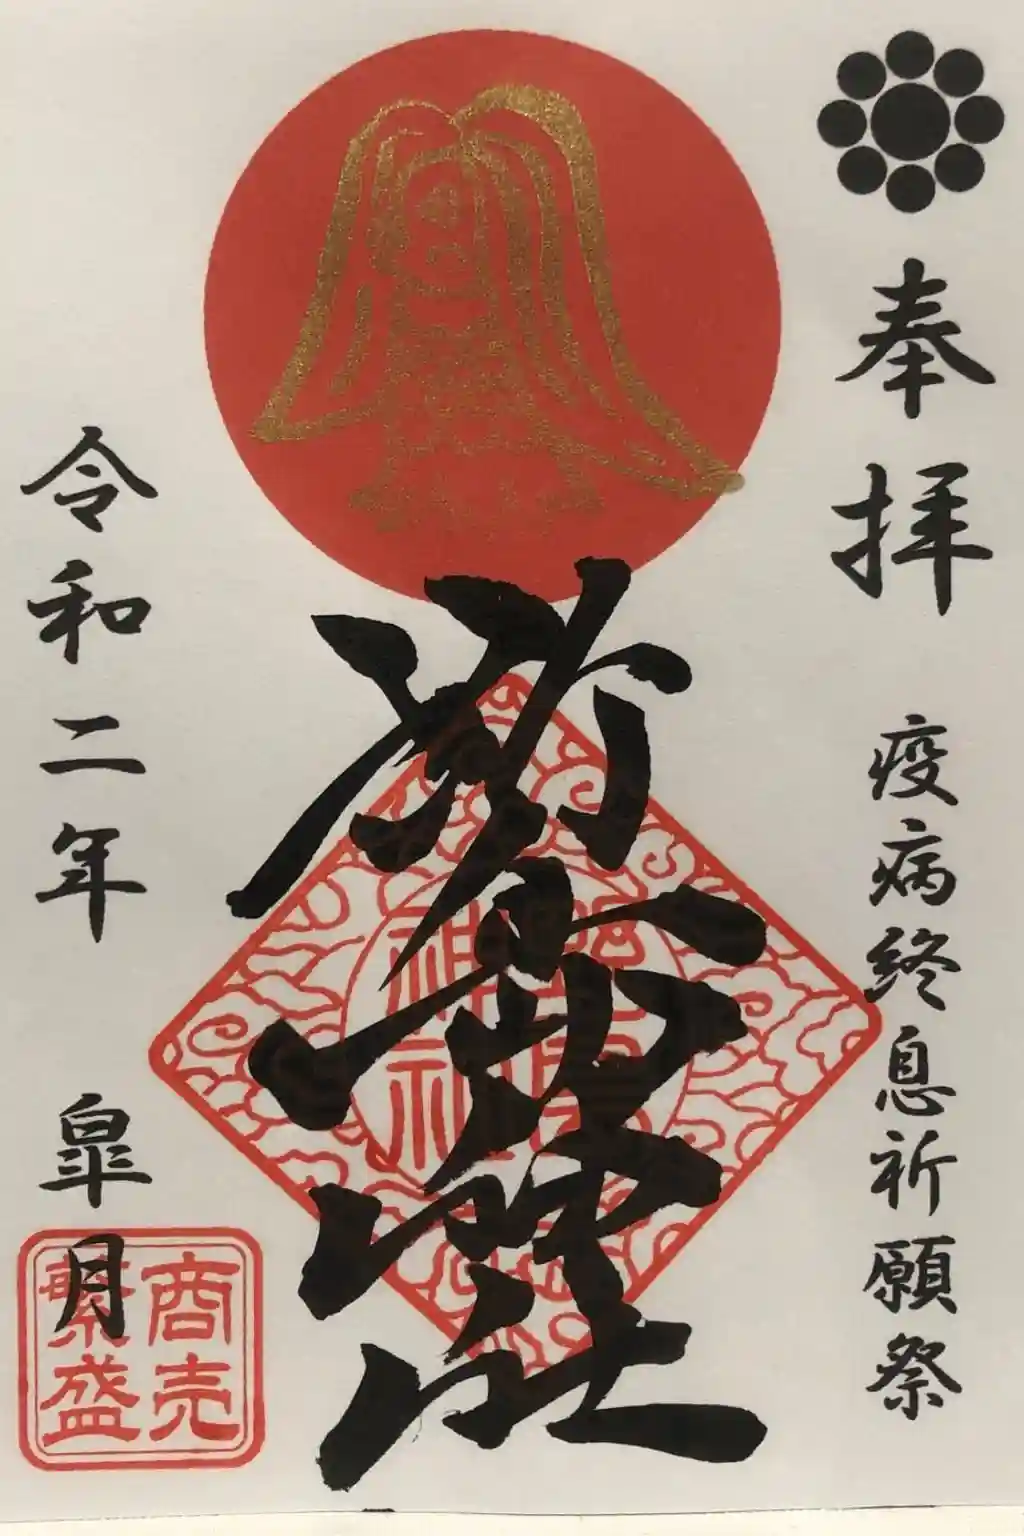 奉拝
疫病終息祈願祭
神社
神社
令和二年 皐月
商売
繁盛